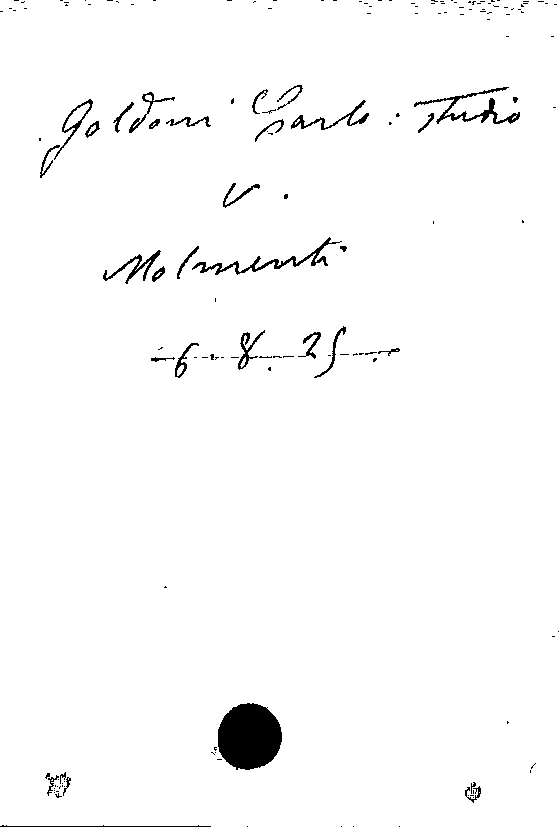 Goldoni Carlo : studio
v.
Molmenti
6.8.25.